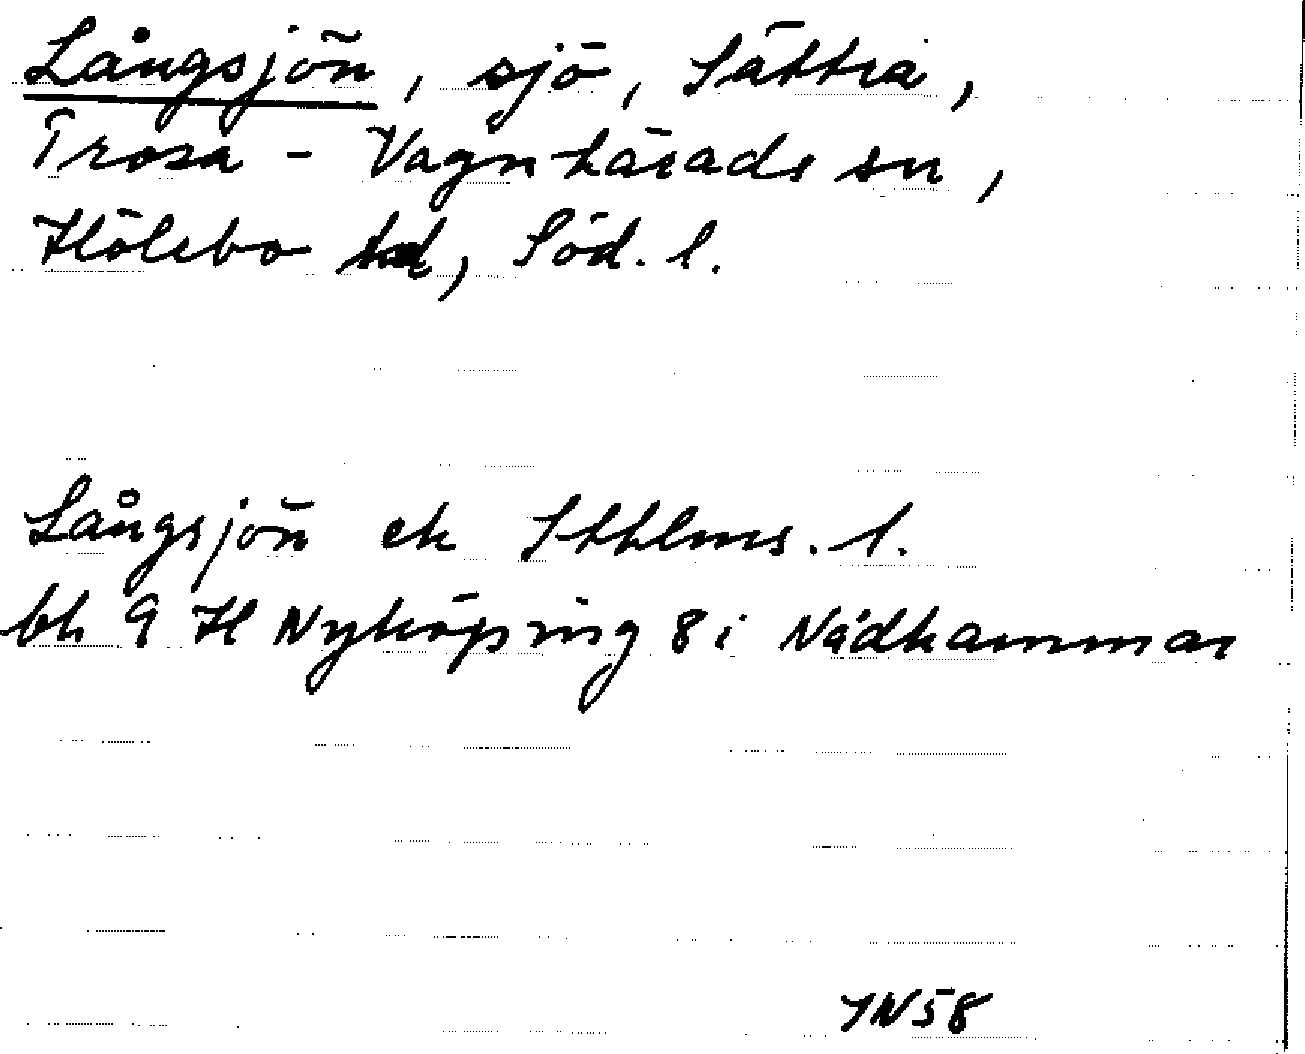 Långsjön, sjö, Sättra,
Trosa - Vagnhärads sn,
Hölebo hd, Söd. l.
Långsjön ek Sthlms. l.
bl. 9 H Nyköping 8 i Nådkammar
SN58